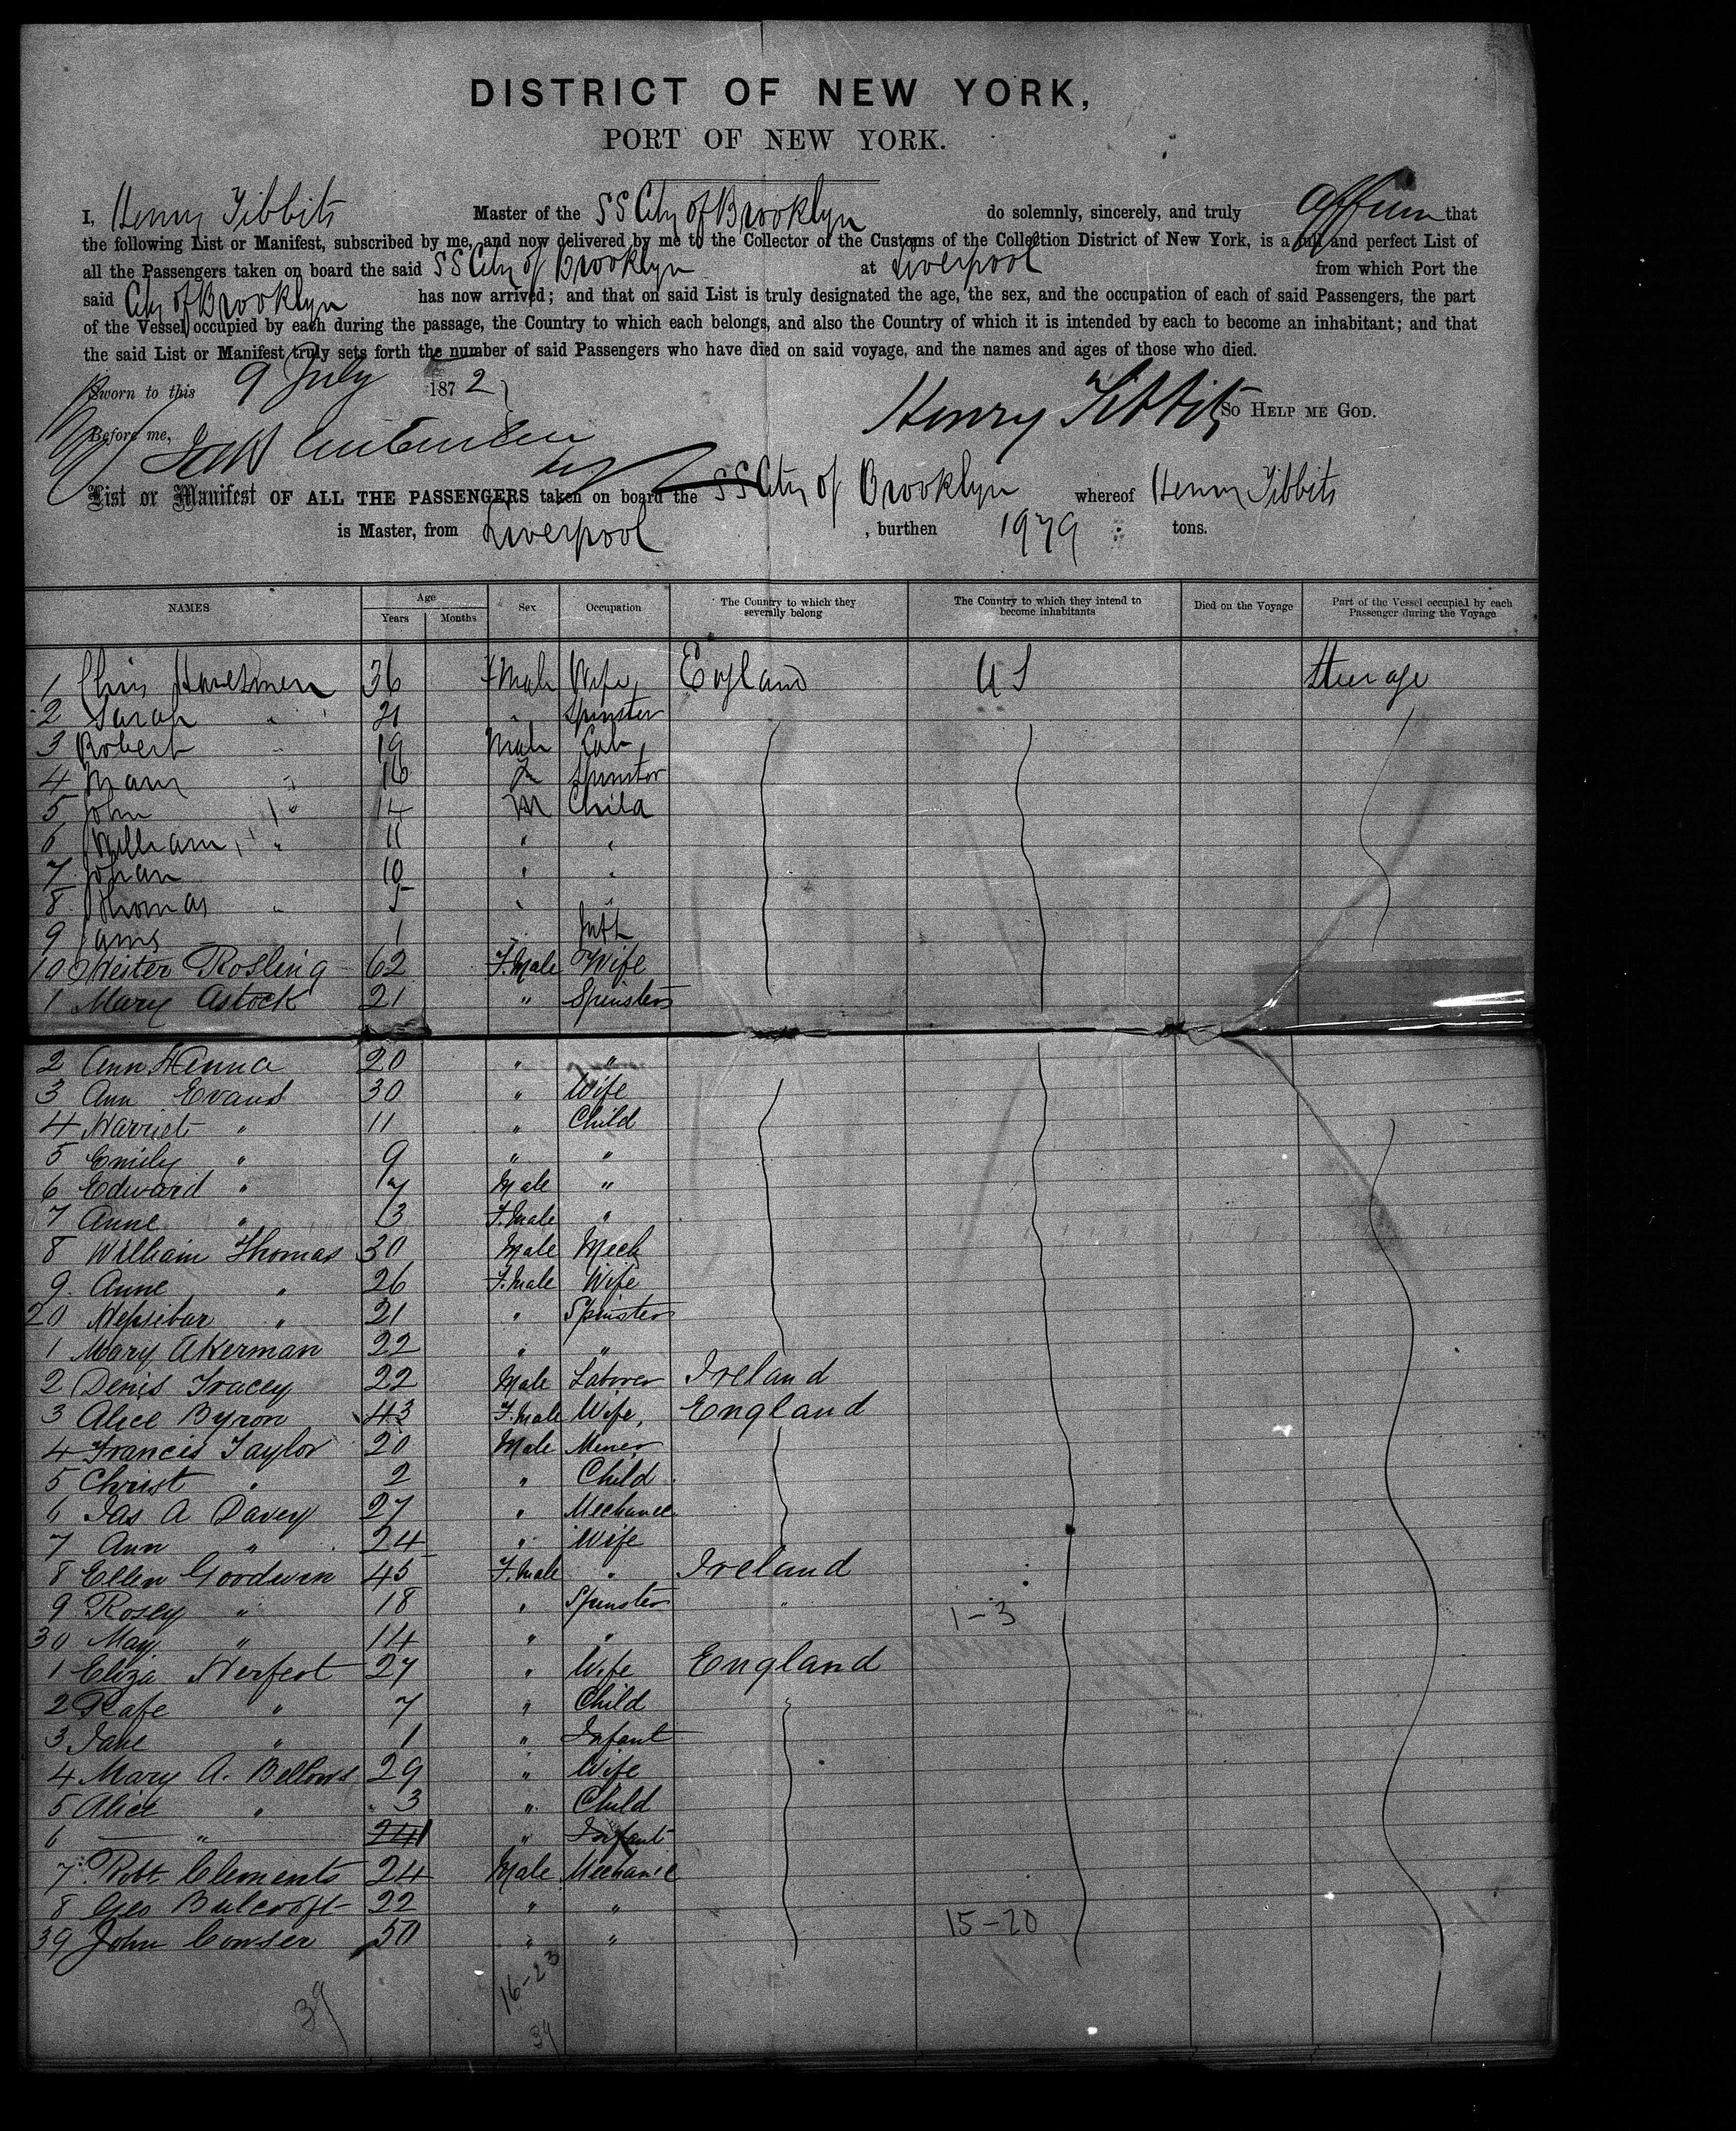 DISTRICT OF NEW YORK,
PORT OF NEW YORK.
I, Henry Tibbits Master of the SS City of Brooklyn do solemnly, sincerely, and truly affirm that
the following List or Manifest, subscribed by me, and now delivered by me to the Collector of the Customs of the Collection District of New York, is a full and perfect List of
all the Passengers taken on board the said SS City of Brooklyn at Liverpool from which Port the
said City of Brooklyn has now arrived; and that on said List is truly designated the age, the sex, and the occupation of each of said Passengers, the part
of the Vessel occupied by each during the passage, the Country to which each belongs, and also the Country of which it is intended by each to become an inhabitant; and that
the said List or Manifest truly sets forth the number of said Passengers who have died on said voyage, and the names and ages of those who died.
Sworn to this 9 July 1872
Henry Tibbits So HELP ME GOD.
Before me,
List or Manifest OF ALL THE PASSENGERS taken on board the SS City of Brooklyn whereof Henry Tibbits
is Master, from Liverpool, burthen 1979 tons.
NAMES Age Years Months Sex Occupation The Country to which they severally belong The Country to which they intend to become inhabitants Died on the Voyage Part of the Vessel occupied by each Passenger during the Voyage
1 36 Wife England US Steerage
2 Sarah " 21 " Spinster
3 Robert " 19 Male Lab
4 " 16 F Spinster
5 John " 14 M Child
6 William " 11 " "
7 10 " "
8 Thomas " 5 " "
9 James 1 Inft
10 Rosling 62 F.Male Wife
1 Mary Astock 21 " Spinster
2 Ann Henna 20 " "
3 Ann Evans 30 " Wife
4 Harriet " 11 " Child
5 Emily " 9 " "
6 Edward " 7 Male "
7 Anne " 3 F.Male "
8 William Thomas 30 Male Mech
9 Anne " 26 F.Male Wife
20 Hepsibar " 21 " Spinster
1 Mary Akerman 22 " "
2 Denis Tracey 22 Male Laborer Ireland
3 Alice Byron 43 F.Male Wife, England
4 Francis Taylor 20 Male Miner
5 Christ " 2 " Child
6 Jas A Davey 27 " Mechanic
7 Ann " 24 " Wife
8 Ellen Goodwin 45 F.Male " Ireland
9 Rosey " 18 " Spinster " 1-3
30 May " 14 " "
1 Eliza Herfert 27 " Wife England
2 Kate " 7 " Child "
3 Jane " 1 " Infant
4 Mary A. Bellows 29 " Wife
5 Alice " 3 " Child
6 " " Infant
7 Robt Clements 24 Male Mechanic
8 Geo Bulcroft 22 " "
39 John Conser 50 " " 15-20
16-23
39